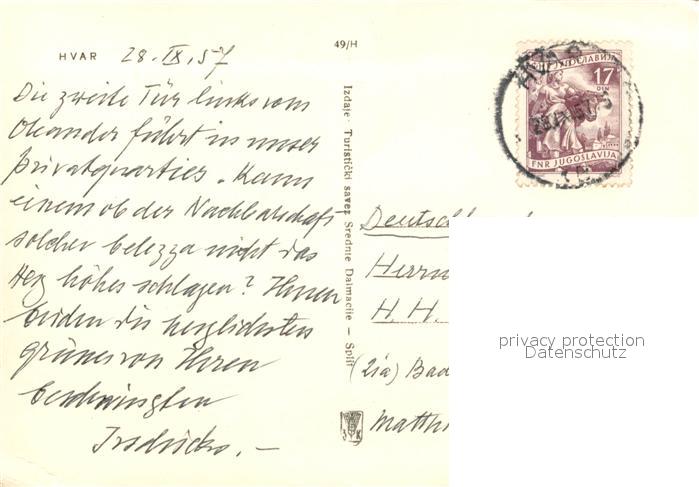 HVAR 28. IX. 57
49/H
Die zweite Tür links vom
Oleander führt in unser
Privatquartier. Kann
einem ob der Nachbarschaft
solcher belezza nicht das
Herz höher schlagen? Ihnen
beiden die herzlichsten
Grüsse von Ihren
Izdaje: Turistički savez Srednje Dalmacije — Split
JUGOSLAVIJA
17
DIN
FNR JUGOSLAVIJA
HVAR
Deutschl
Herrn
H. H.
(21a) Bad
Matth
privacy protection
Datenschutz